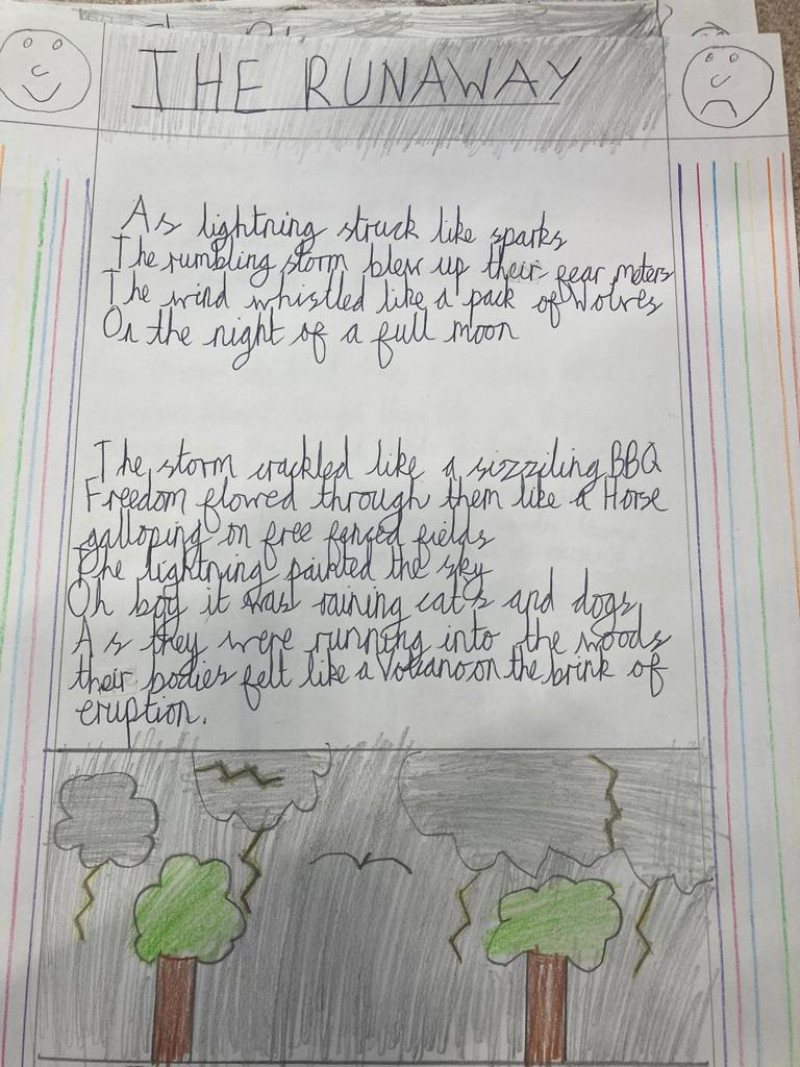 THE RUNAWAY
As lightning struck like sparks
The rumbling storm blew up their fear meters
The wind whistled like a pack of Wolves
On the night of a full moon
The storm crackled like a sizziling BBQ
Freedom flowed through them like a Horse
galloping on free fenced fields
The lightning painted the sky
Oh boy it was raining cat's and dogs
As they were running into the woods
their bodies felt like a Volcano on the brink of
eruption.